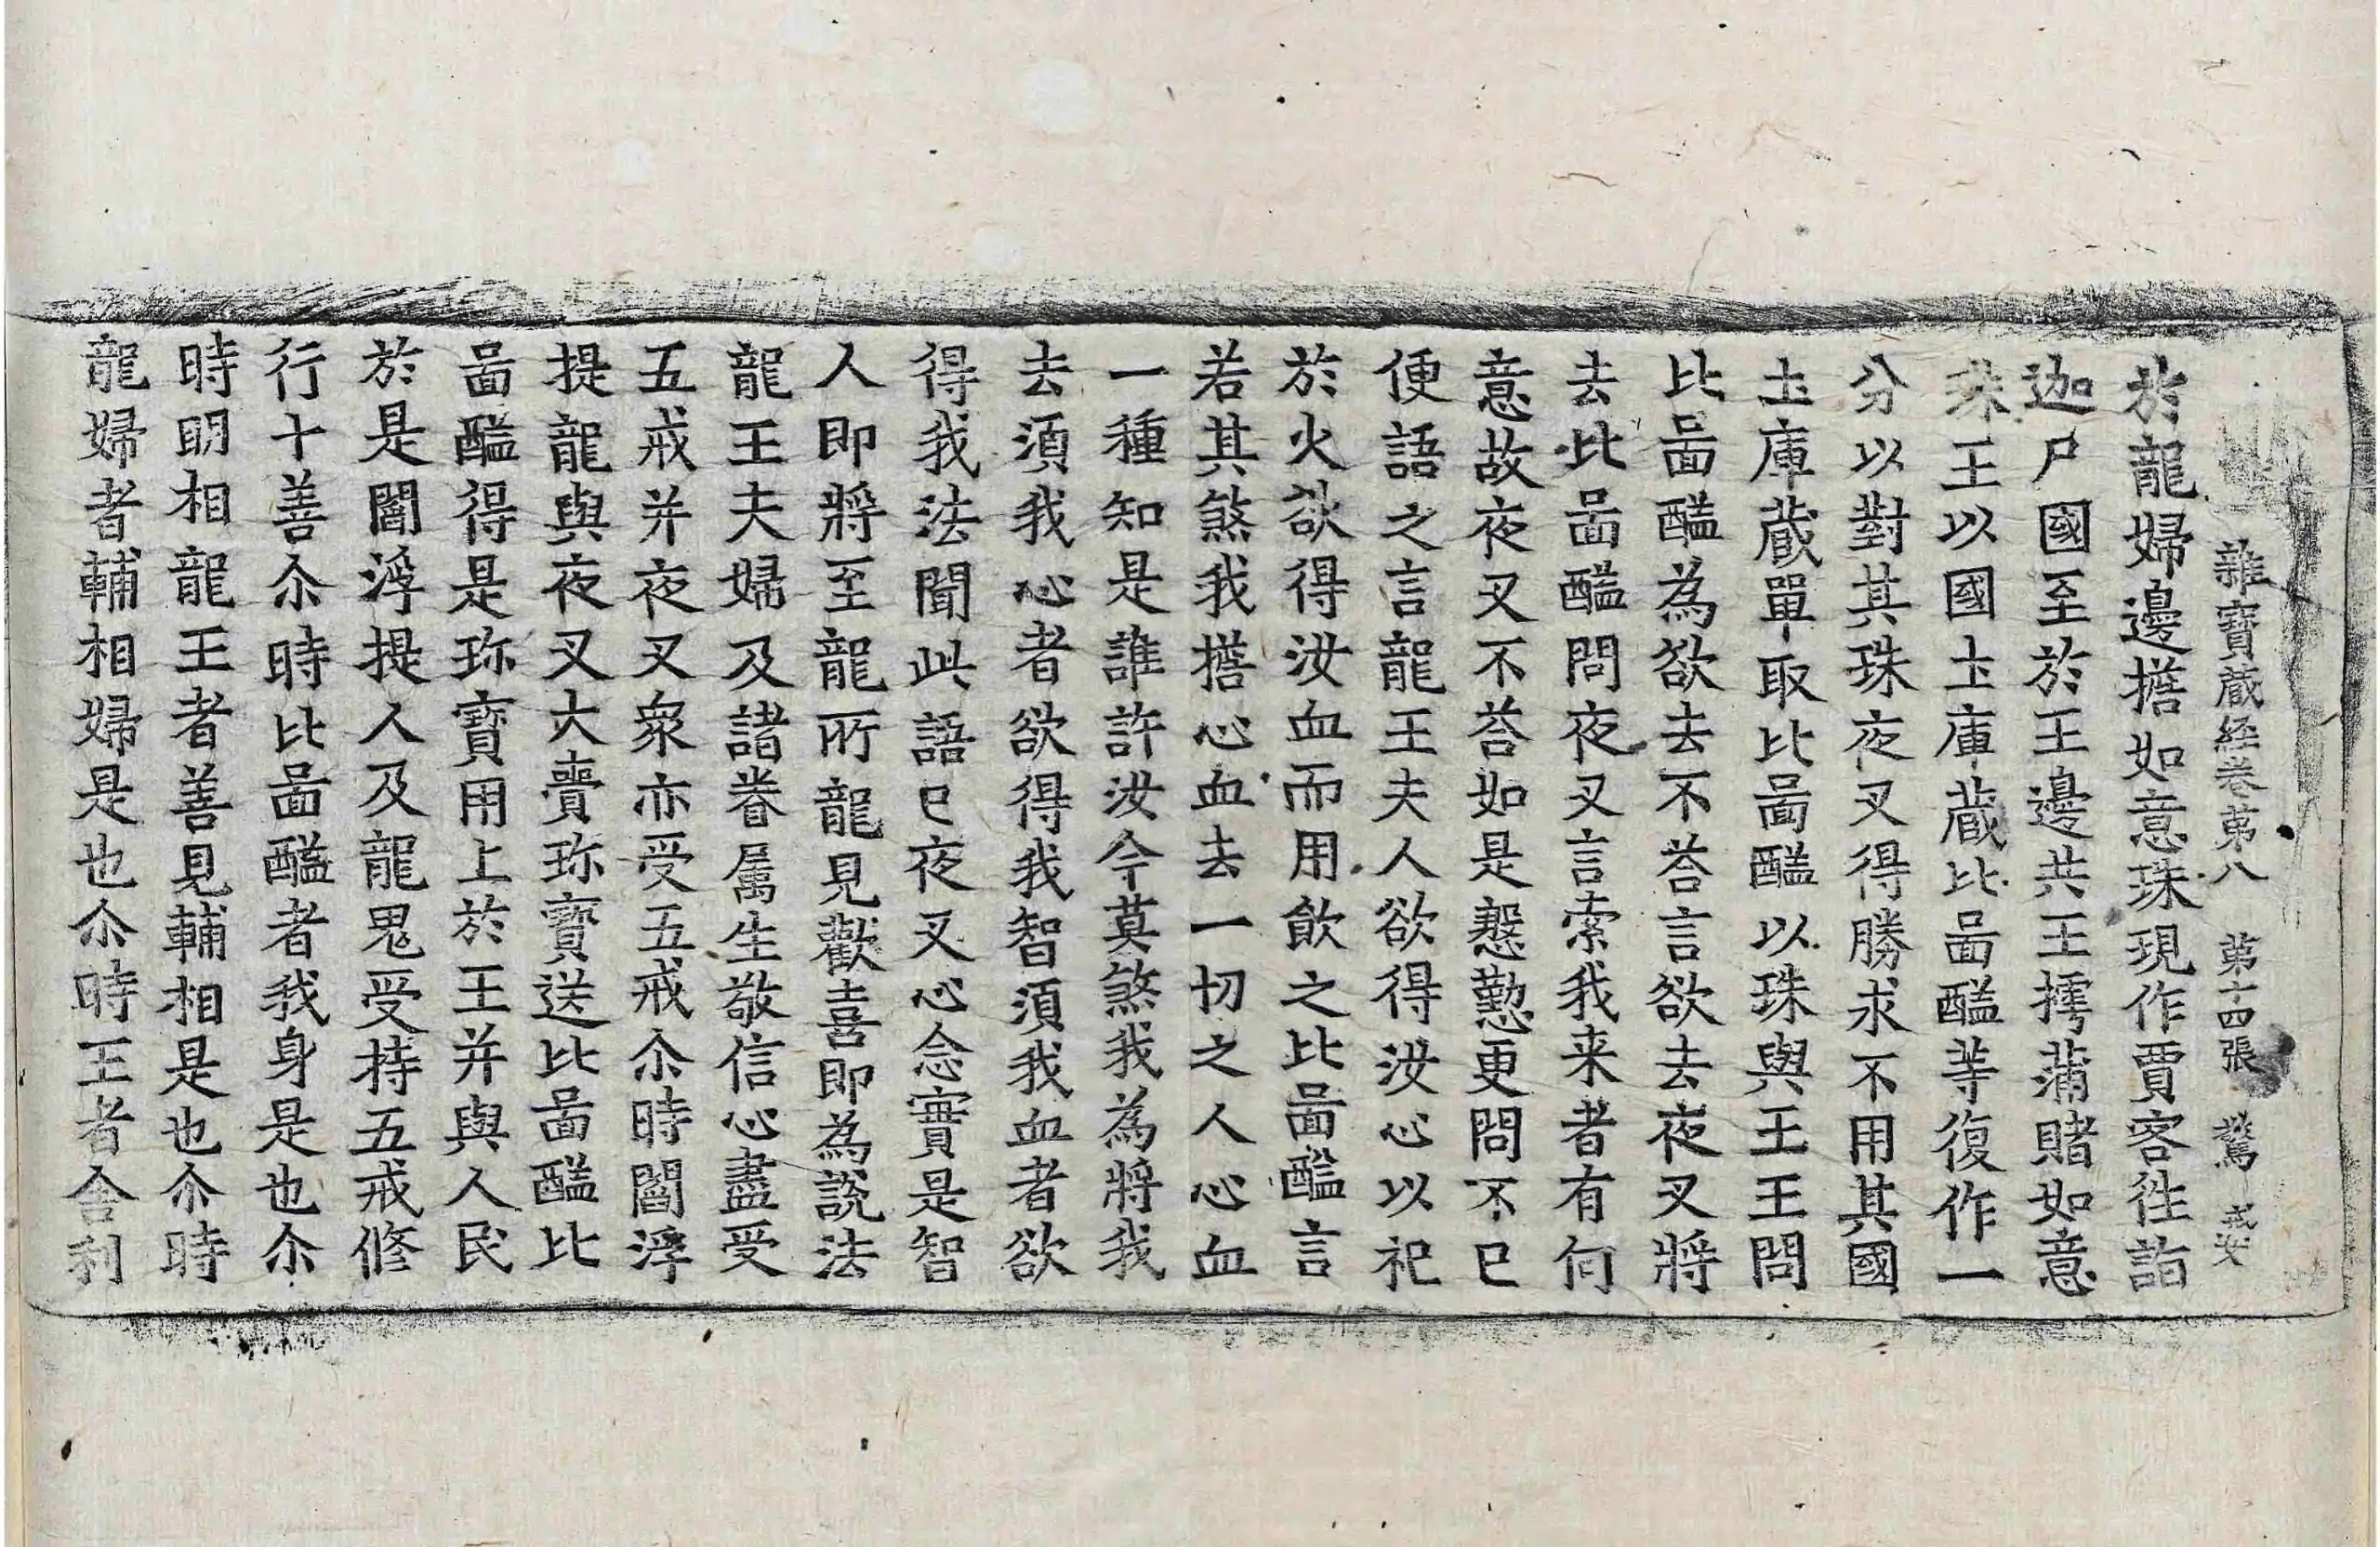 雜寶蔵経卷苐八　苐十四張　驚　戒安
於龍婦邊㩜如意珠現作賈客徃詣
迦尸國至於王邊共王摴蒲賭如意
珠王以國圡庫蔵比啚醯等復作一
分以對其珠夜叉得勝求不用其國
圡庫蔵單取比啚醯以珠與王王問
比啚醯為欲去不荅言欲去夜叉將
去比啚醯問夜叉言索我来者有何
意故夜叉不荅如是慇懃更問不已
便語之言龍王夫人欲得汝心以祀
於火欲得汝血而用飲之比啚醯言
若其煞我㩜心血去一切之人心血
一種知是誰許汝今莫煞我為將我
去須我心者欲得我智須我血者欲
得我法聞此語已夜叉心念實是智
人即將至龍所龍見歡喜即為說法
龍王夫婦及諸眷属生敬信心盡受
五戒并夜叉衆亦受五戒尒時閻浮
提龍與夜叉大賷珎寶送比啚醯比
啚醯得是珎寶用上於王并與人民
於是閻浮提人及龍鬼受持五戒修
行十善尒時比啚醯者我身是也尒
時明相龍王者善見輔相是也尒時
龍婦者輔相婦是也尒時王者舎利